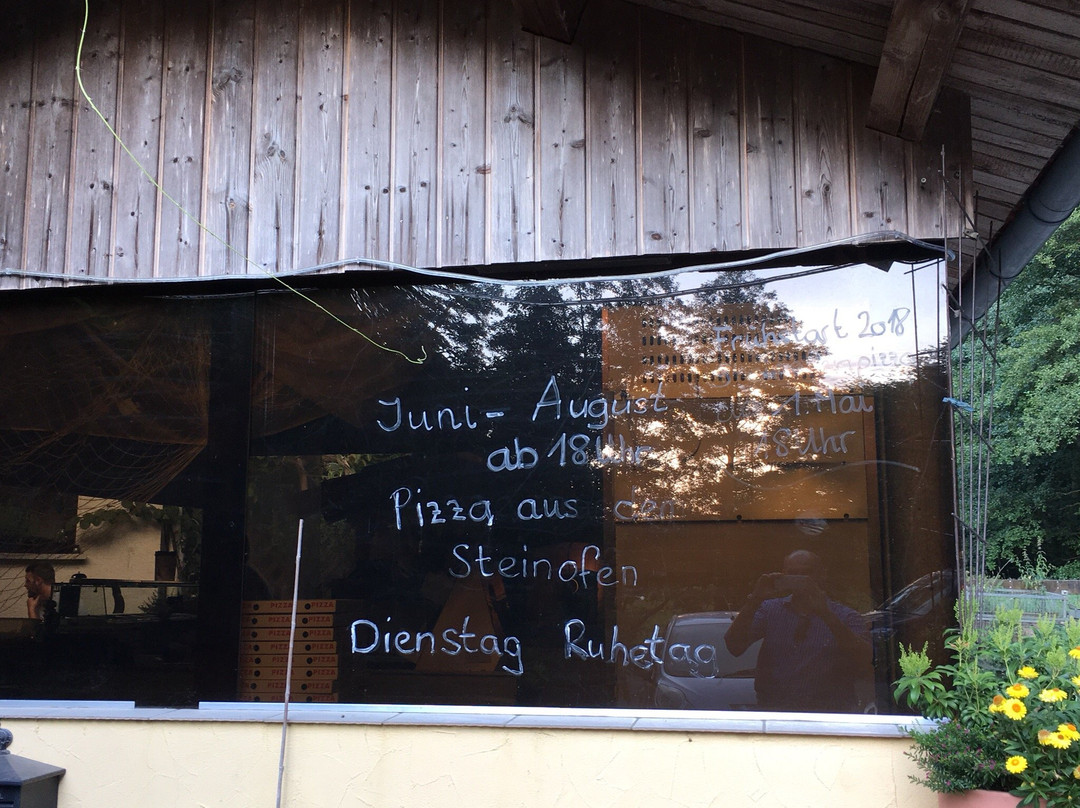 Juni - August
ab 18 Uhr
Pizza aus dem
Steinofen
Dienstag Ruhetag
Frühstart 2018
1. Mai
18 Uhr
PIZZA PIZZA
PIZZA PIZZA
PIZZA PIZZA
PIZZA PIZZA
PIZZA PIZZA
PIZZA PIZZA
PIZZA PIZZA
PIZZA PIZZA